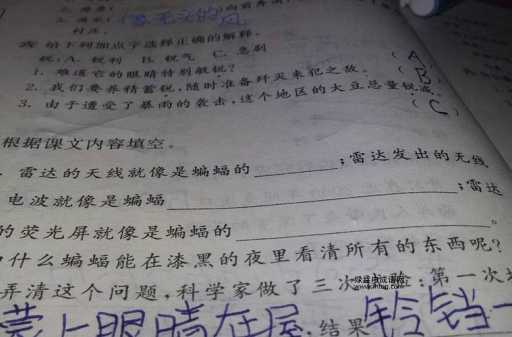 (像无家的风
给下列加点字选择正确的解释。
锐：A. 锐利 B. 锐气 C. 急剧
1. 难道它的眼睛特别敏锐？ ( A )
2. 我们要养精蓄锐，随时准备歼灭来犯之敌。 ( B )
3. 由于遭受了暴雨的袭击，这个地区的大豆总量锐减。 ( C )
根据课文内容填空。
雷达的天线就像是蝙蝠的________；雷达发出的无线
电波就像是蝙蝠________；雷达
的荧光屏就像是蝙蝠的________。
什么蝙蝠能在漆黑的夜里看清所有的东西呢？
弄清这个问题，科学家做了三次 验：第一次
蒙上眼睛在屋，结果铃铛一